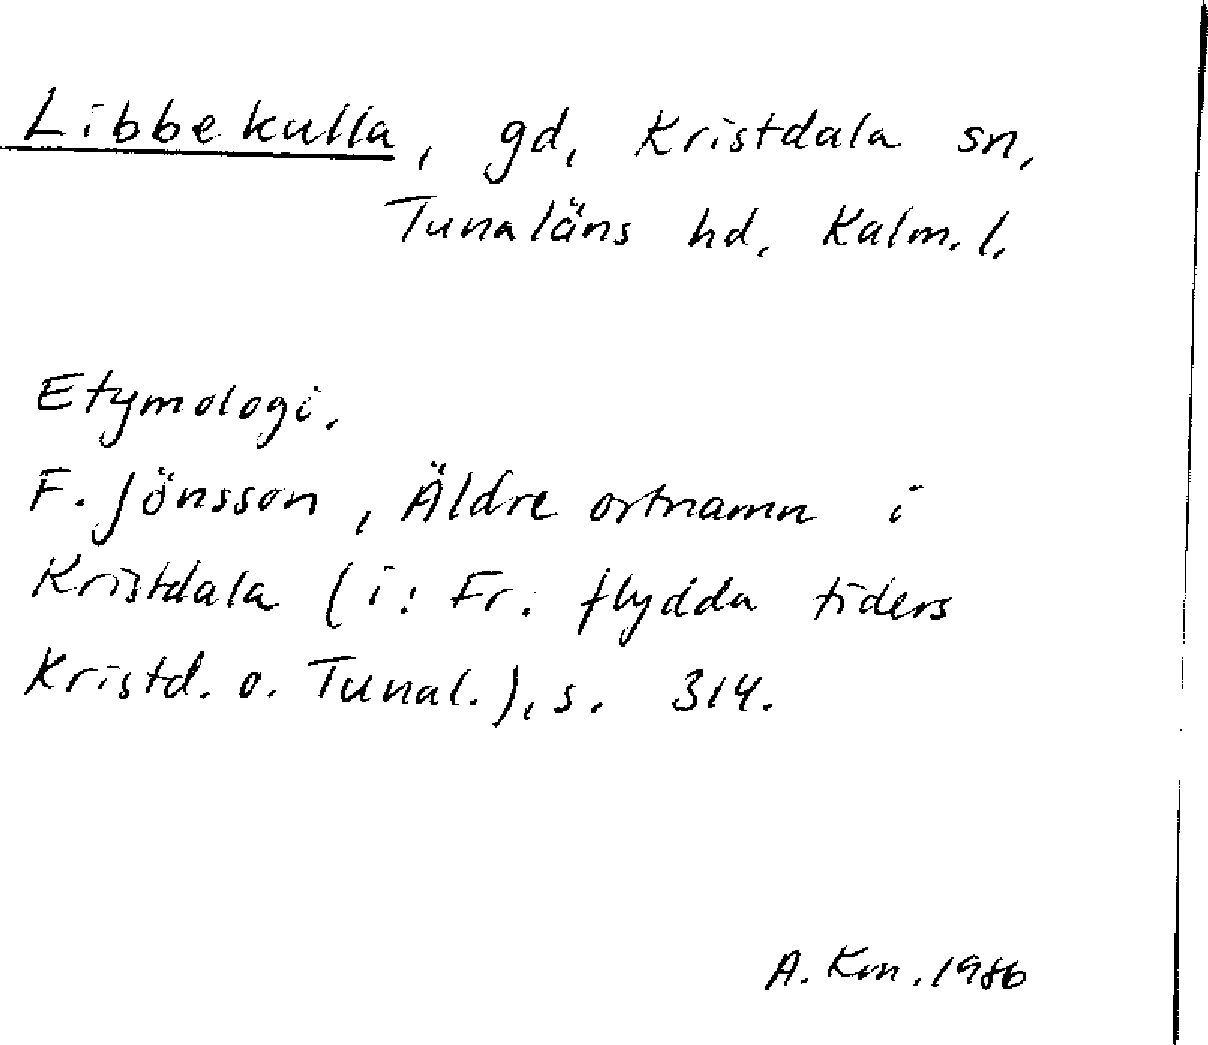 Libbekulla, gd, Kristdala sn,
Tunaläns hd, Kalm. l.
Etymologi.
F. Jönsson, Äldre ortnamn i
Kristdala (i: Fr. flydda tiders
Kristd. o. Tunal.), s. 314.
A. Km. 1986